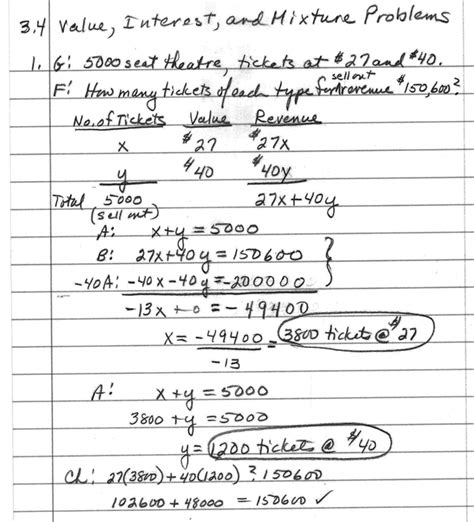 3.4 Value, Interest, and Mixture Problems
1. G: 5000 seat theatre, tickets at $27 and $40.
sell out
F: How many tickets of each type for revenue $150,600?
No. of Tickets Value Revenue
x $27 $27x
y $40 $40y
Total 5000 27x+40y
(sell out)
A: x+y = 5000
B: 27x+40y = 150600
-40A: -40x-40y = -200000
-13x + 0 = -49400
x = -49400 = 3800 tickets @ $27
-13
A: x+y = 5000
3800 + y = 5000
y = 1200 tickets @ $40
Ch: 27(3800)+40(1200) ? 150600
102600 + 48000 = 150600 ✓